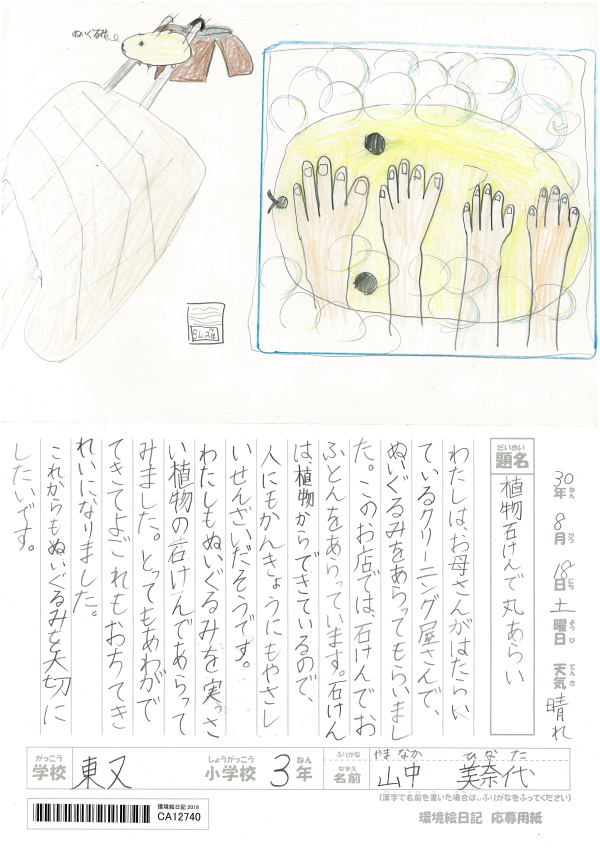 ぬいぐるみ
30年ねん 8月がつ 18日にち 土曜日ようび 天気てんき 晴れ
題名だいめい 植物石けんで丸あらい
わたしは、お母さんがはたらい
ているクリーニング屋さんで、
ぬいぐるみをあらってもらいまし
た。このお店では、石けんでお
ふとんをあらっています。石けん
は、植物からできているので、
人にもかんきょうにもやさし
いせんざいだそうです。
わたしもぬいぐるみを実さ
い植物の石けんであらって
みました。とってもあわがで
てきてよごれもおちてき
れいになりました。
これからもぬいぐるみを大切に
したいです。
がっこう 学校 東又 しょうがっこう 小学校 3年ねん
ふりがな やまなか ひなた
なまえ 名前 山中 美奈代
(漢字で名前を書いた場合は、ふりがなをふってください)
環境絵日記 2018
CA12740
環境絵日記 応募用紙